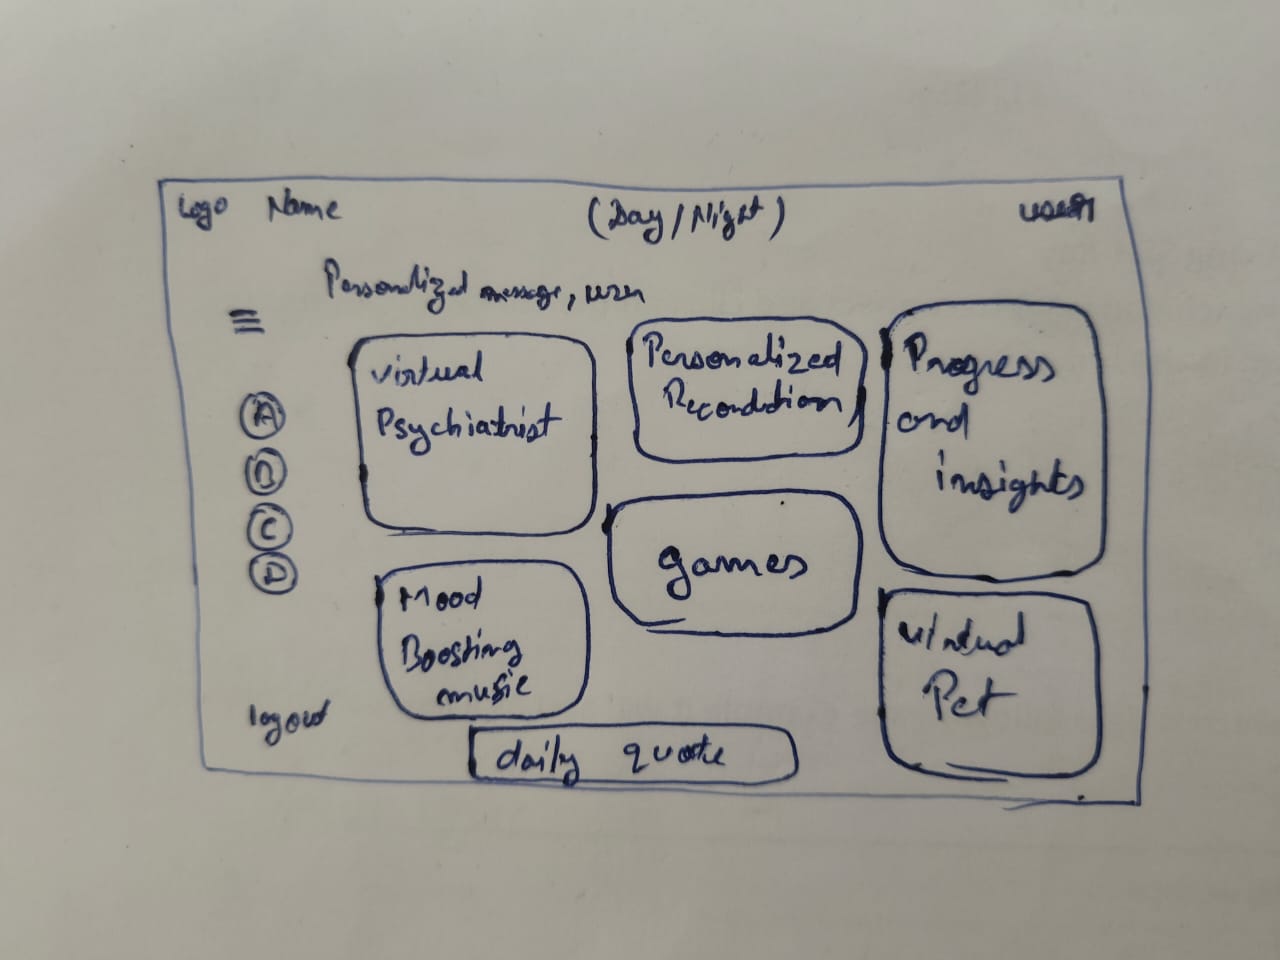 Logo Name (Day/Night) user
Personalized message, user
Virtual
Psychiatrist
Personalized
Progress
and
insights
A
B
C
D
games
Mood
Boosting
music
Virtual
Pet
logout
daily quote